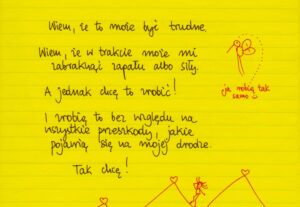 Wiem, że to może być trudne.
Wiem, że w trakcie może mi
zabraknąć zapału albo siły.
A jednak chcę to zrobić!
I zrobię to bez względu na
wszystkie przeszkody, jakie
pojawią się na mojej drodze.
Tak chcę!
ja robię tak
samo